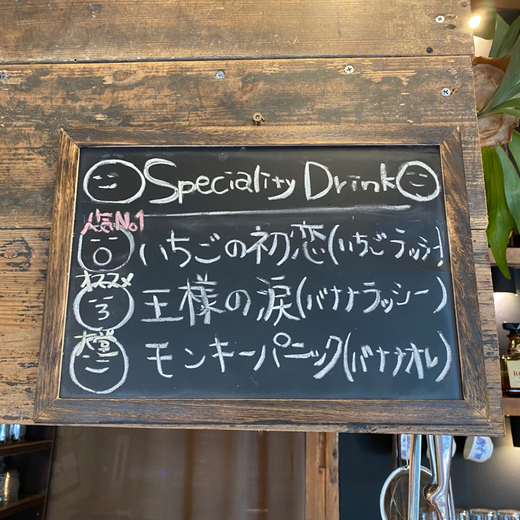 Speciality Drink
人気No.1
いちごの初恋(いちごラッシー)
オススメ
王様の涙(バナナラッシー)
モンキーパニック(バナナオレ)